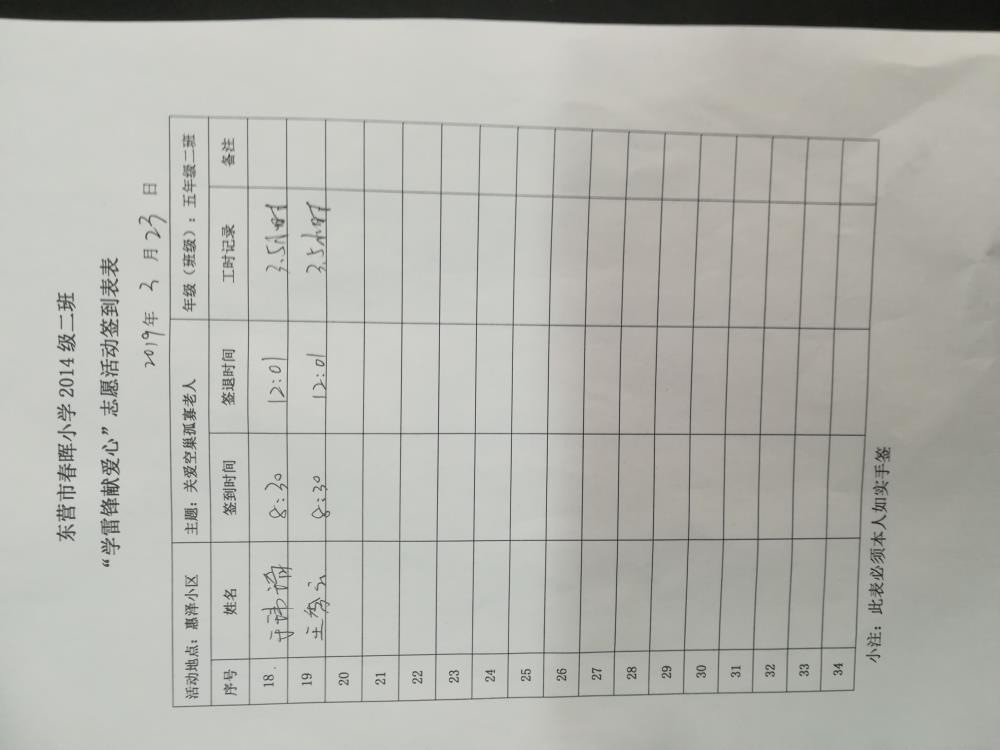 东营市春晖小学2014级二班
“学雷锋献爱心”志愿活动签到表表
2019年 3 月 23 日
活动地点：惠泽小区 主题：关爱空巢孤寡老人 年级（班级）：五年级二班
序号 姓名 签到时间 签退时间 工时记录 备注
18. 8:30 12:01 3.5小时
19 8:30 12:01 3.5小时
20
21
22
23
24
25
26
27
28
29
30
31
32
33
34
小注：此表必须本人如实手签